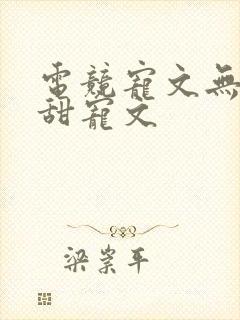 電競寵文無
甜寵文
梁崇平